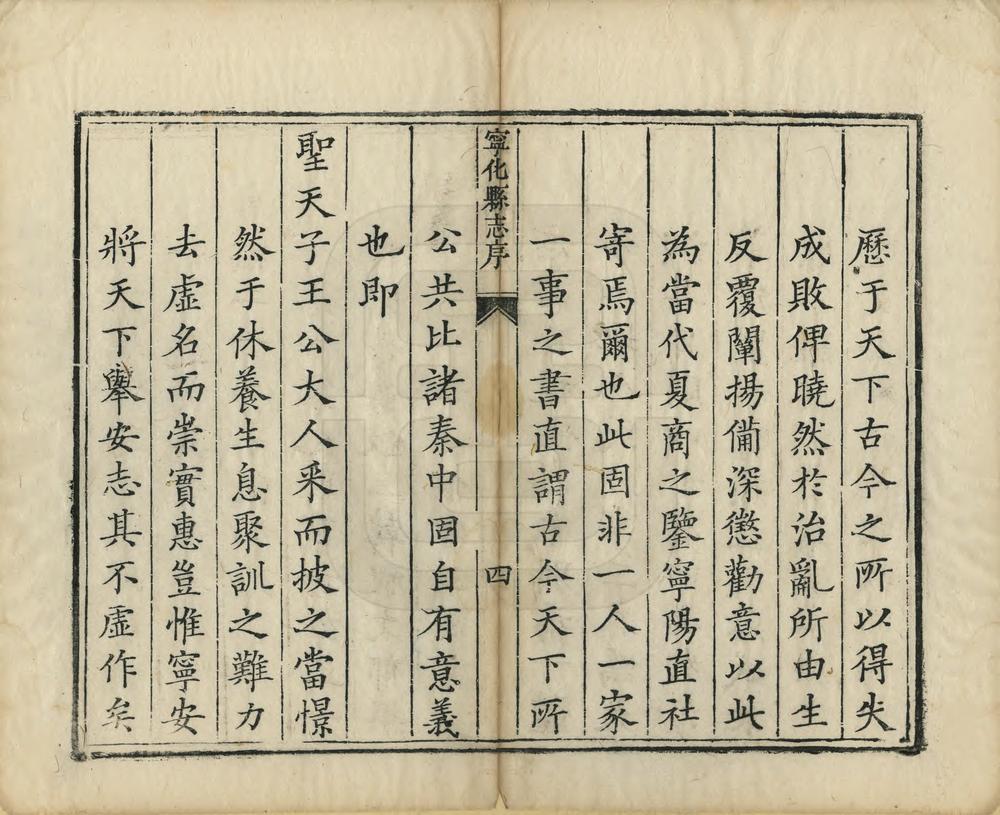 歷于天下古今之所以得失
成敗俾曉然於治亂所由生
反覆闡揚備深懲勸意以此
為當代夏商之鑒寧陽直社
寄焉爾也此固非一人一家
一事之書直謂古今天下所
寧化縣志序
四
公共比諸秦中固自有意義
也即
聖天子王公大人釆而披之當憬
然于休養生息聚訓之難力
去虛名而崇實惠豈惟寧安
將天下舉安志其不虛作矣